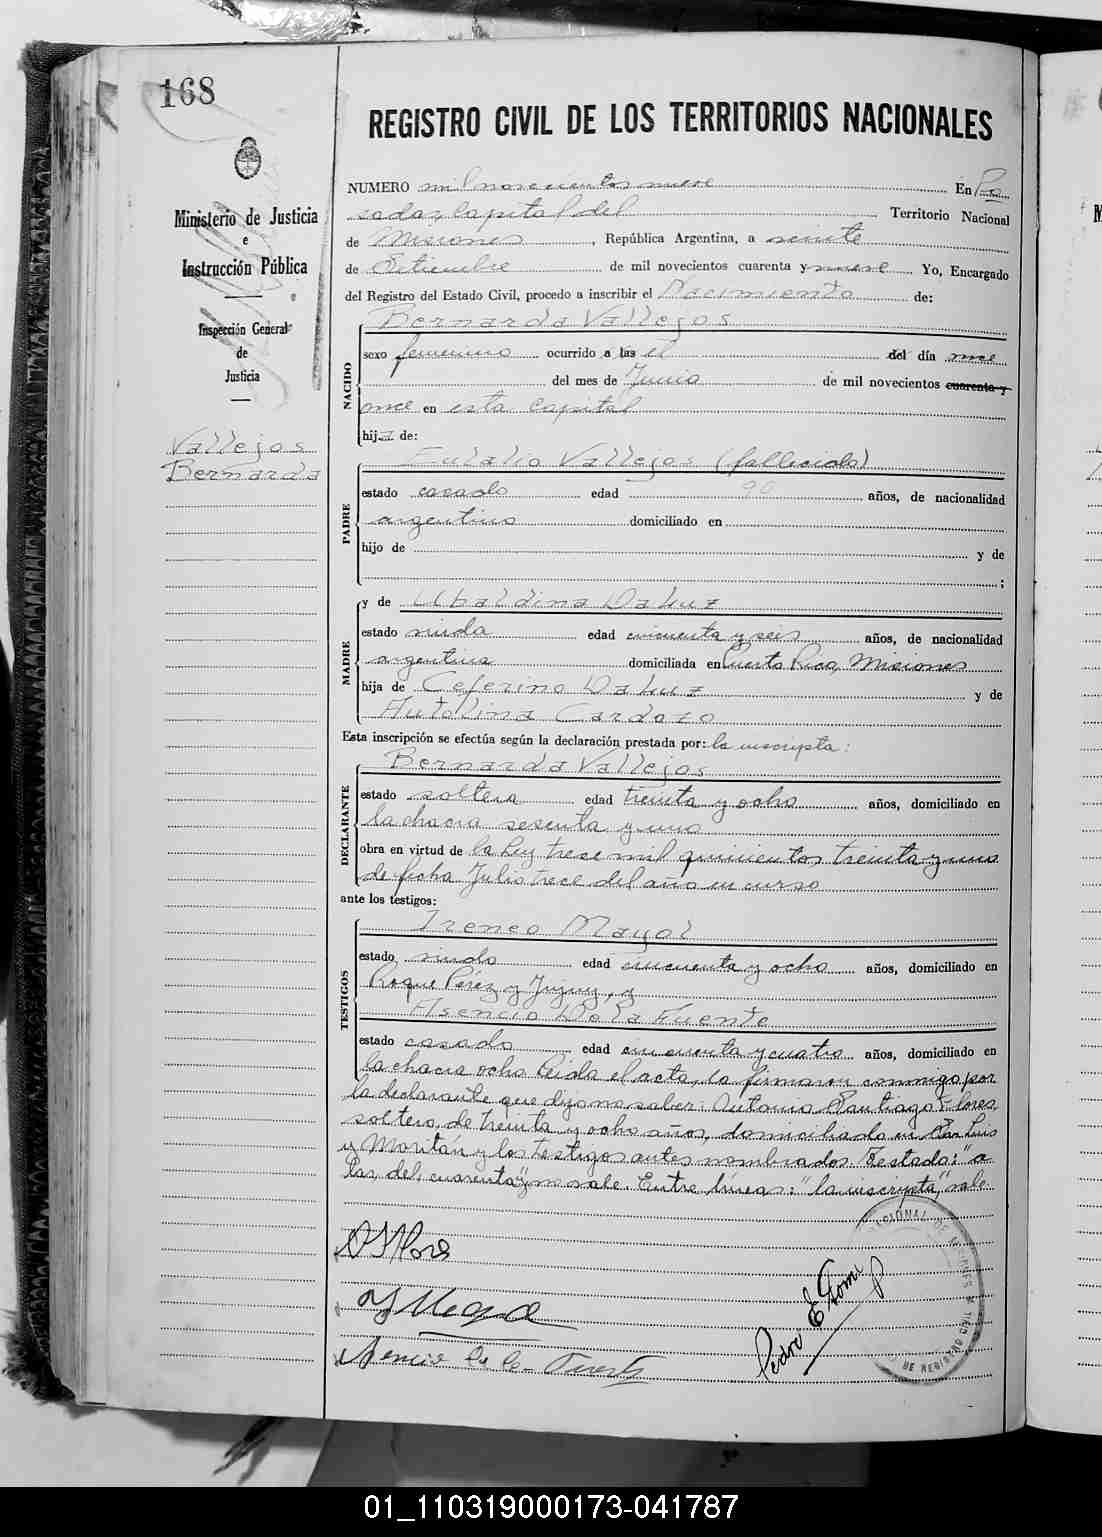 168
REGISTRO CIVIL DE LOS TERRITORIOS NACIONALES
Ministerio de Justicia
e
Instrucción Pública
Inspección General
de
Justicia
Vallejos
Bernarda
NUMERO mil novecientos nueve En Po
sadas, Capital del Territorio Nacional
de Misiones, República Argentina, a veinte
de Setiembre de mil novecientos cuarenta y nueve Yo, Encargado
del Registro del Estado Civil, procedo a inscribir el Nacimiento de:
Bernarda Vallejos
NACIDO
sexo femenino ocurrido a las el del día once
del mes de Junio de mil novecientos cuarenta y
once en esta Capital
hija de:
Eulalio Vallejos (fallecido)
PADRE
estado casado edad años, de nacionalidad
argentino domiciliado en
hijo de y de
;
y de Ubaldina Daluz
MADRE
estado viuda edad cincuenta y seis años, de nacionalidad
argentina domiciliada en Puerto Rico, Misiones
hija de Ceferino Daluz y de
Autolina Cardozo
Esta inscripción se efectúa según la declaración prestada por: la inscripta:
Bernarda Vallejos
DECLARANTE
estado soltera edad treinta y ocho años, domiciliado en
la chacra sesenta y uno
obra en virtud de la Ley trece mil quinientos treinta y uno
de fecha Julio trece del año en curso
ante los testigos:
Ireneo Mayol
TESTIGOS
estado viudo edad cincuenta y ocho años, domiciliado en
Roque Pérez y Jujuy, y
Asencio De la Fuente
estado casado edad cincuenta y cuatro años, domiciliado en
la chacra ocho leída el acta, la firmaron conmigo, por
la declarante que dijo no saber: Antonio Santiago Flores,
soltero, de treinta y ocho años, domiciliado en San Luis
y Moritán y los testigos antes nombrados. Testado: "a
las, del, cuarenta y" no vale. Entre líneas: "la inscripta," vale
A S Flores
Pedro E
Asencio De la Fuente
01_110319000173-041787